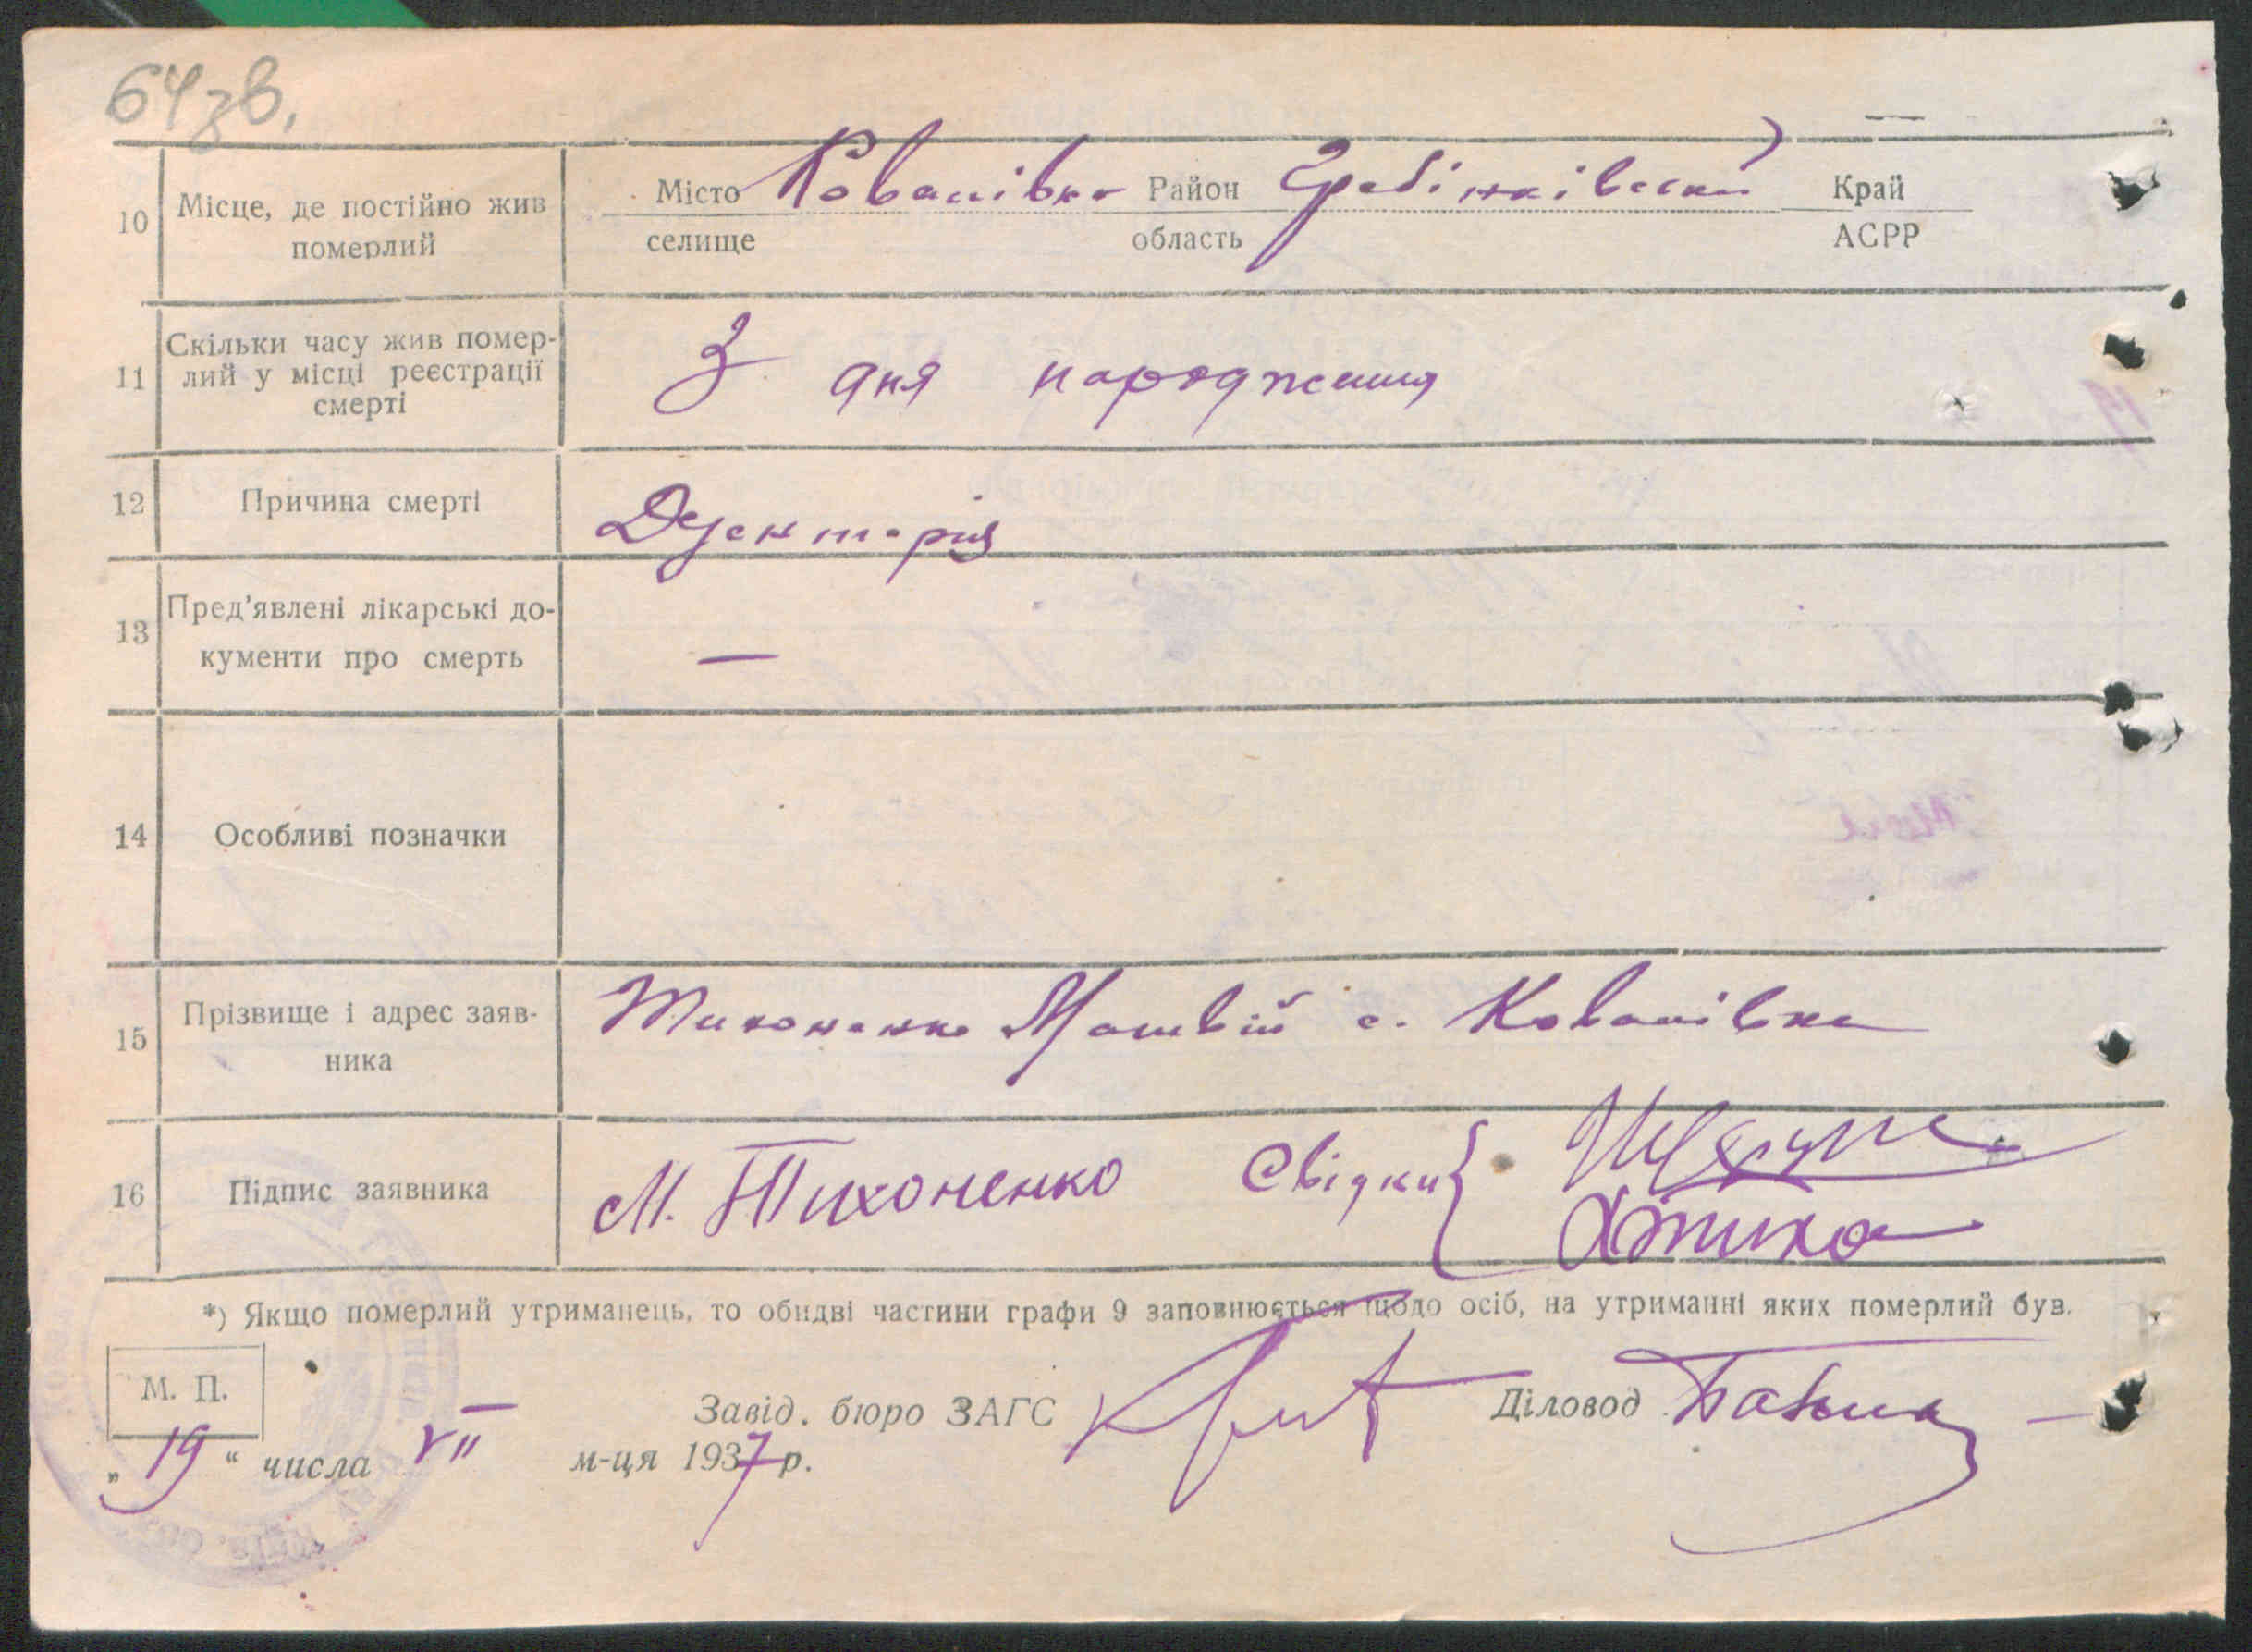 64зв.
10 Місце, де постійно жив померлий
Місто Ковалівка Район Гребінківський Край
селище область АСРР
11 Скільки часу жив помер-
лий у місці реєстрації
смерті
З дня народження
12 Причина смерті
Дизентерія
13 Пред'явлені лікарські до-
кументи про смерть
—
14 Особливі позначки
15 Прізвище і адрес заяв-
ника
Тихоненко Матвій с. Ковалівка
16 Підпис заявника
М. Тихоненко Свідки {
*) Якщо померлий утриманець, то обидві частини графи 9 заповнюється щодо осіб, на утриманні яких померлий був.
М. П.
Завід. бюро ЗАГС Діловод
„19“ числа VII м-ця 1937 р.